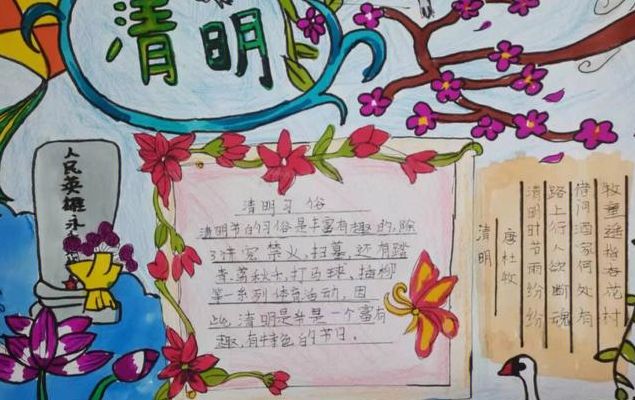 清明
人民英雄永
清明习俗
清明节的习俗是丰富有趣的,除
了讲究禁火,扫墓,还有踏
青,荡秋千,打马球,插柳
等一系列体育活动,因
此,清明是节是一个富有
趣,有特色的节日。
清明
唐杜牧
清明时节雨纷纷
路上行人欲断魂
借问酒家何处有
牧童遥指杏花村